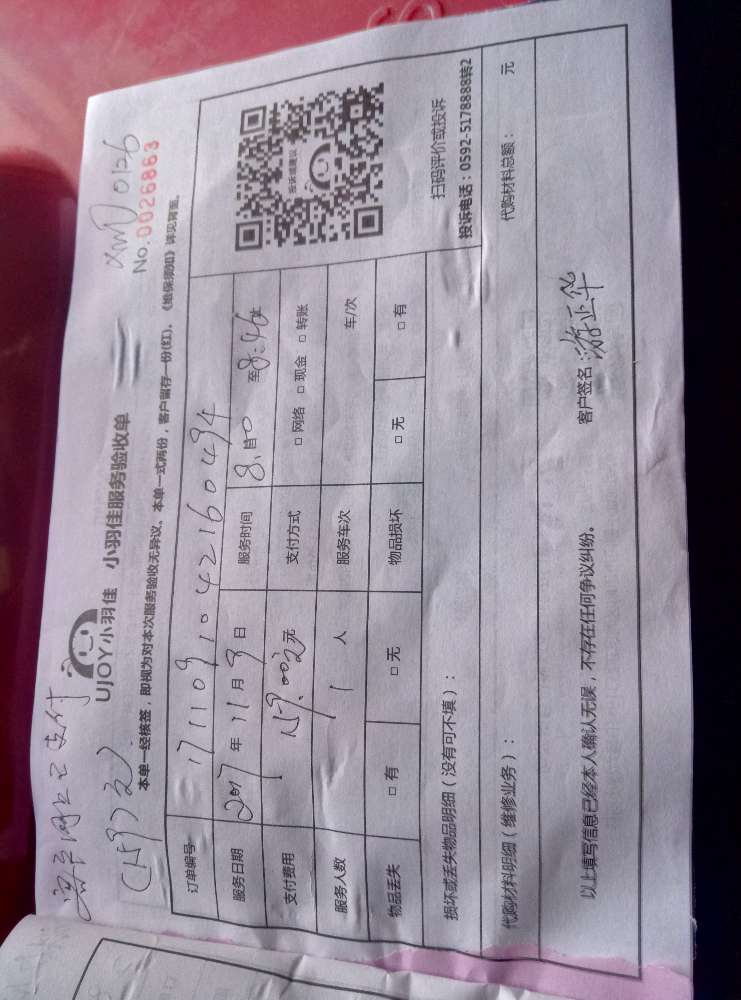 网上已支付
UJOY小羽佳 小羽佳服务验收单
No.0026863
本单一经核签，即视为对本次服务验收无异议。本单一式两份，客户留存一份(红)，《维保须知》详见背面。
订单编号 1711091042160494
服务日期 2017 年 11 月 9 日 服务时间 至
支付费用 159.00 元 支付方式 □ 网络 □ 现金 □ 转账
服务人数 1 人 服务车次 车/次
物品丢失 □ 有 □ 无 物品损坏 □ 无 □ 有
投诉或建议
扫码评价或投诉
投诉电话：0592-5178888转2
损坏或丢失物品明细（没有可不填）：
代购材料明细（维修业务）： 代购材料总额： 元
以上填写信息已经本人确认无误，不存在任何争议纠纷。
客户签名：游正华